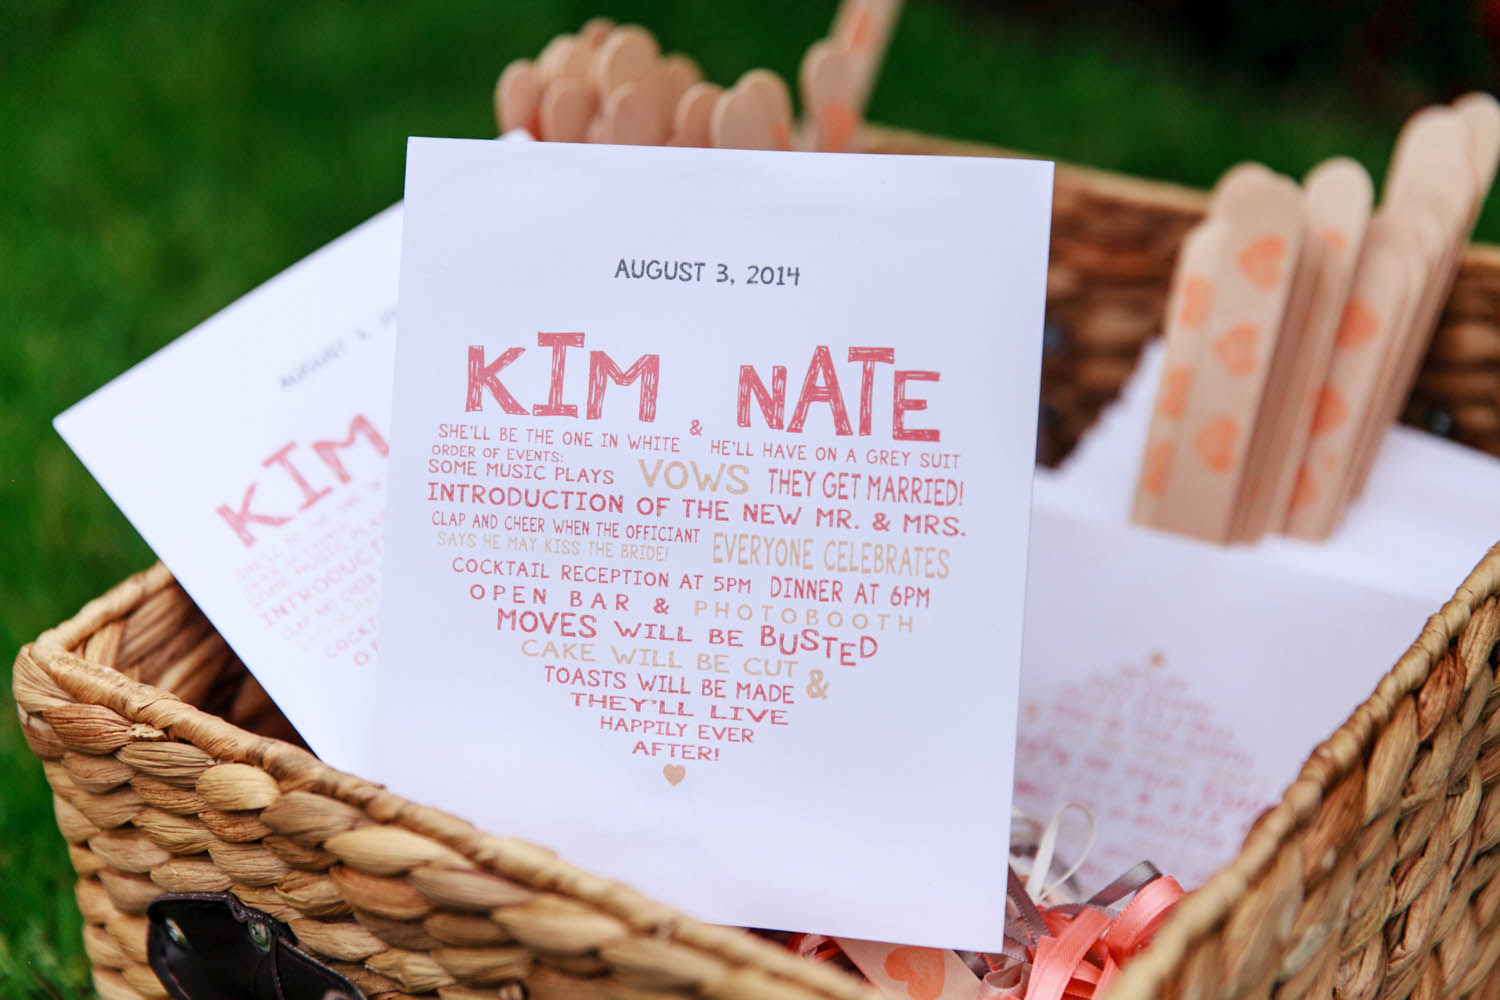 AUGUST 3, 2014
KIM & NATE
SHE'LL BE THE ONE IN WHITE HE'LL HAVE ON A GREY SUIT
ORDER OF EVENTS:
SOME MUSIC PLAYS VOWS THEY GET MARRIED!
INTRODUCTION OF THE NEW MR. & MRS.
CLAP AND CHEER WHEN THE OFFICIANT
SAYS HE MAY KISS THE BRIDE! EVERYONE CELEBRATES
COCKTAIL RECEPTION AT 5PM DINNER AT 6PM
OPEN BAR & PHOTOBOOTH
MOVES WILL BE BUSTED
CAKE WILL BE CUT &
TOASTS WILL BE MADE
THEY'LL LIVE
HAPPILY EVER
AFTER!
AUGUST 3,
KIM